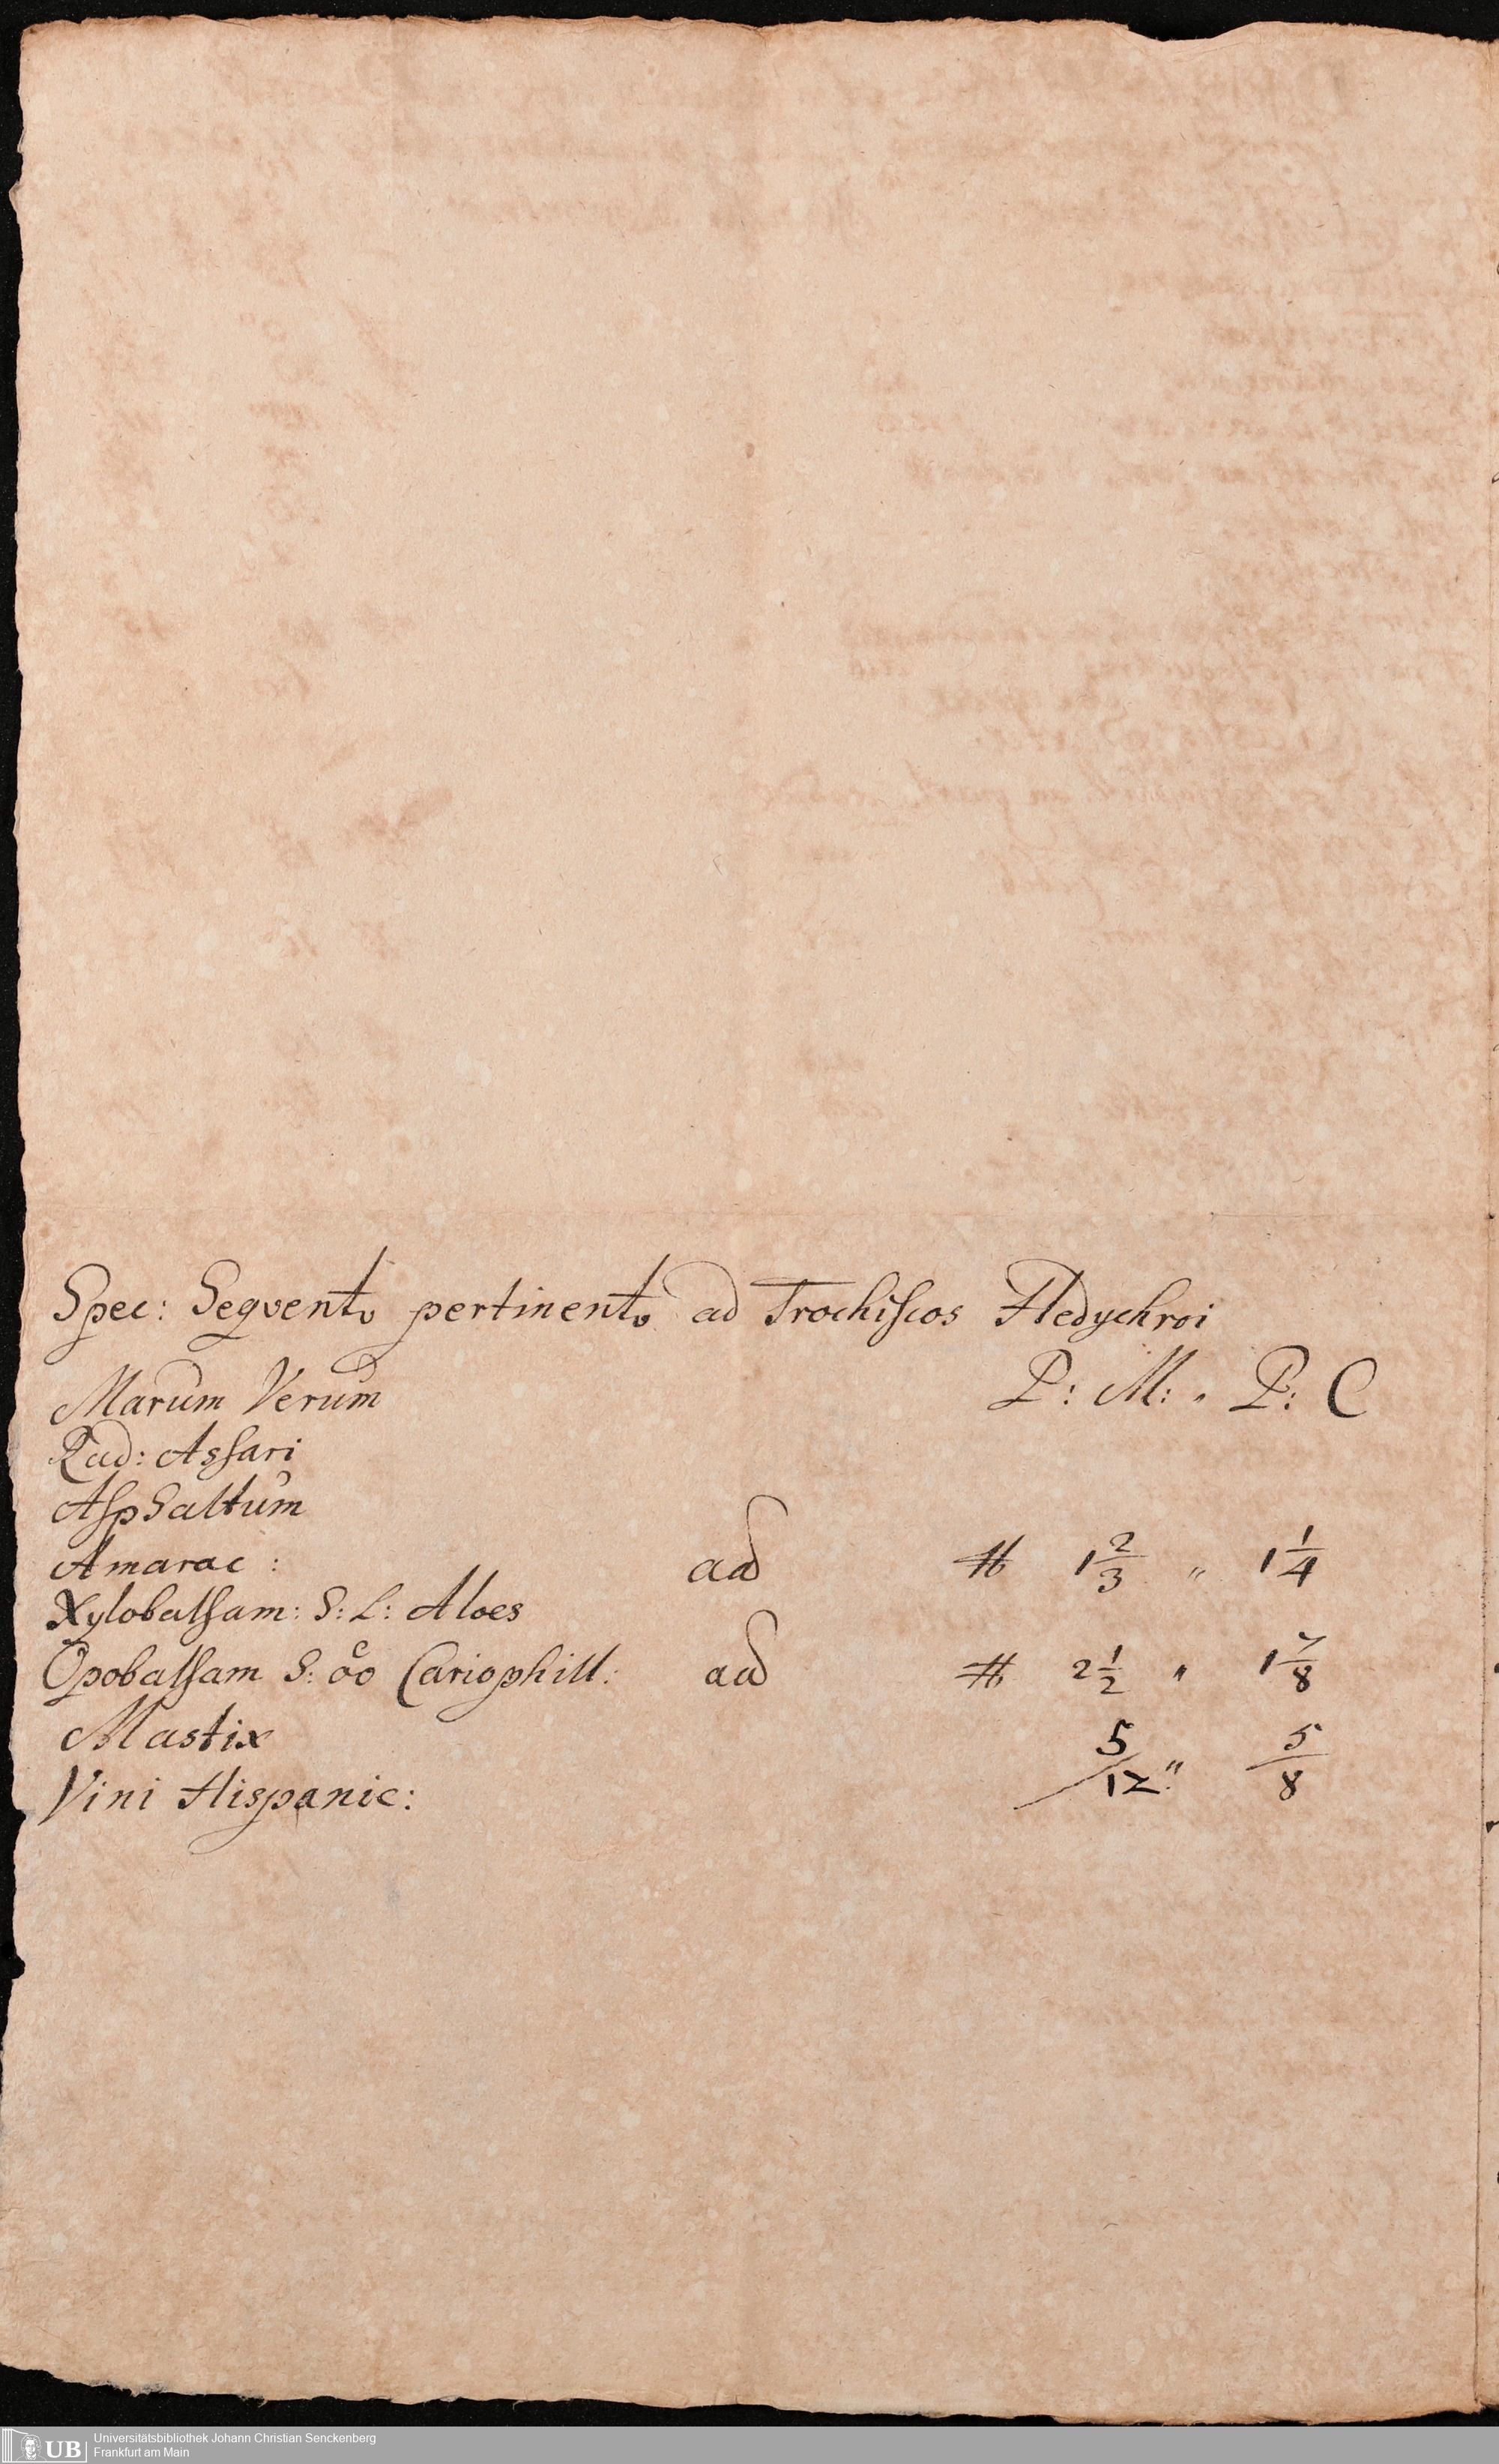 Spec: Seqvent pertinent ad Trochiſcos Hedychroi
P: M: " P: C
Marum Verum
Rad: Asſari
Aſphaltum
Amarac: ad ℔ 1 2/3 " 1 1/4
Xylobalſam: S: L: Aloes
Opobalſam S: Cariophill: ad ℔ 2 1/2 " 1 7/8
Mastix 5/12 " 5/8
Vini Hispanic:
UB Universitätsbibliothek Johann Christian Senckenberg
Frankfurt am Main